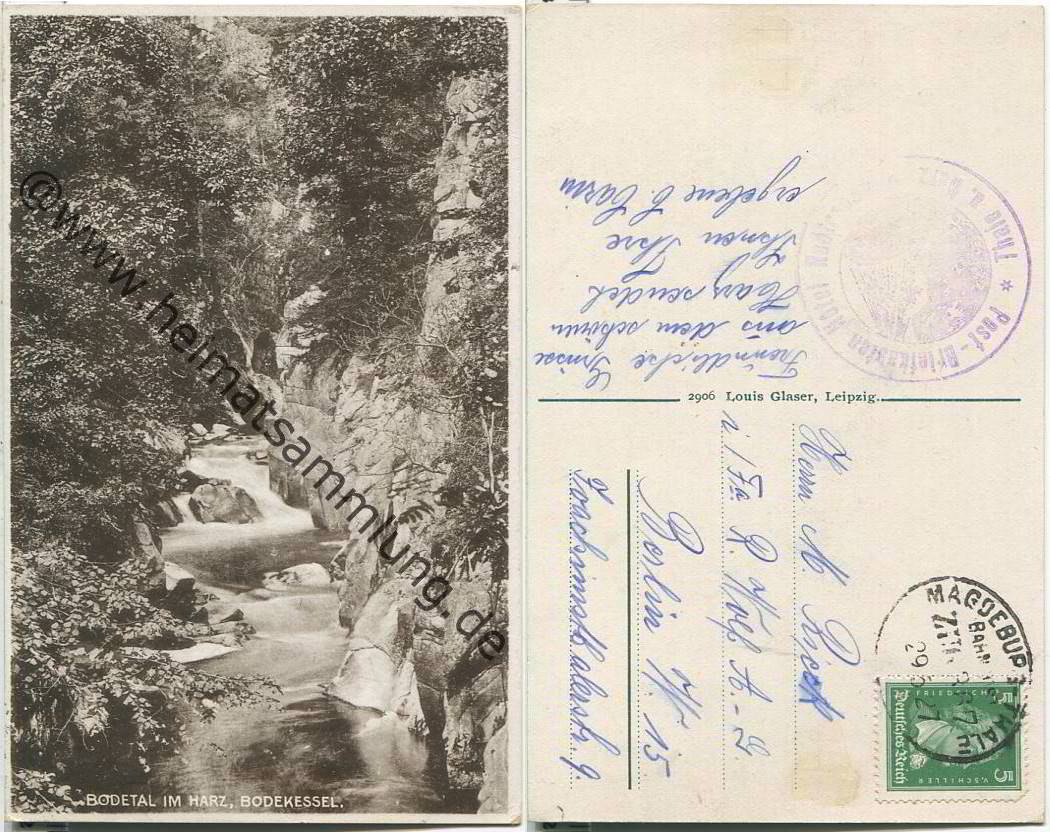 @www.heimatsammlung.de
BODETAL IM HARZ, BODEKESSEL.
Freundliche Grüsse
aus dem schönen
Harz sendet
Ihnen Ihre
ergebene
* Post-Briefkasten Hotel
Thale a. Harz
2906 Louis Glaser, Leipzig.
Herrn M.
i/Fa R. Wolf A.-G.
Berlin W. 15
Joachimsthalerstr. 9
MAGDEBURG
THALE
BAHNPOST
ZUG
FRIEDRICH V. SCHILLER
Deutsches Reich
5
5